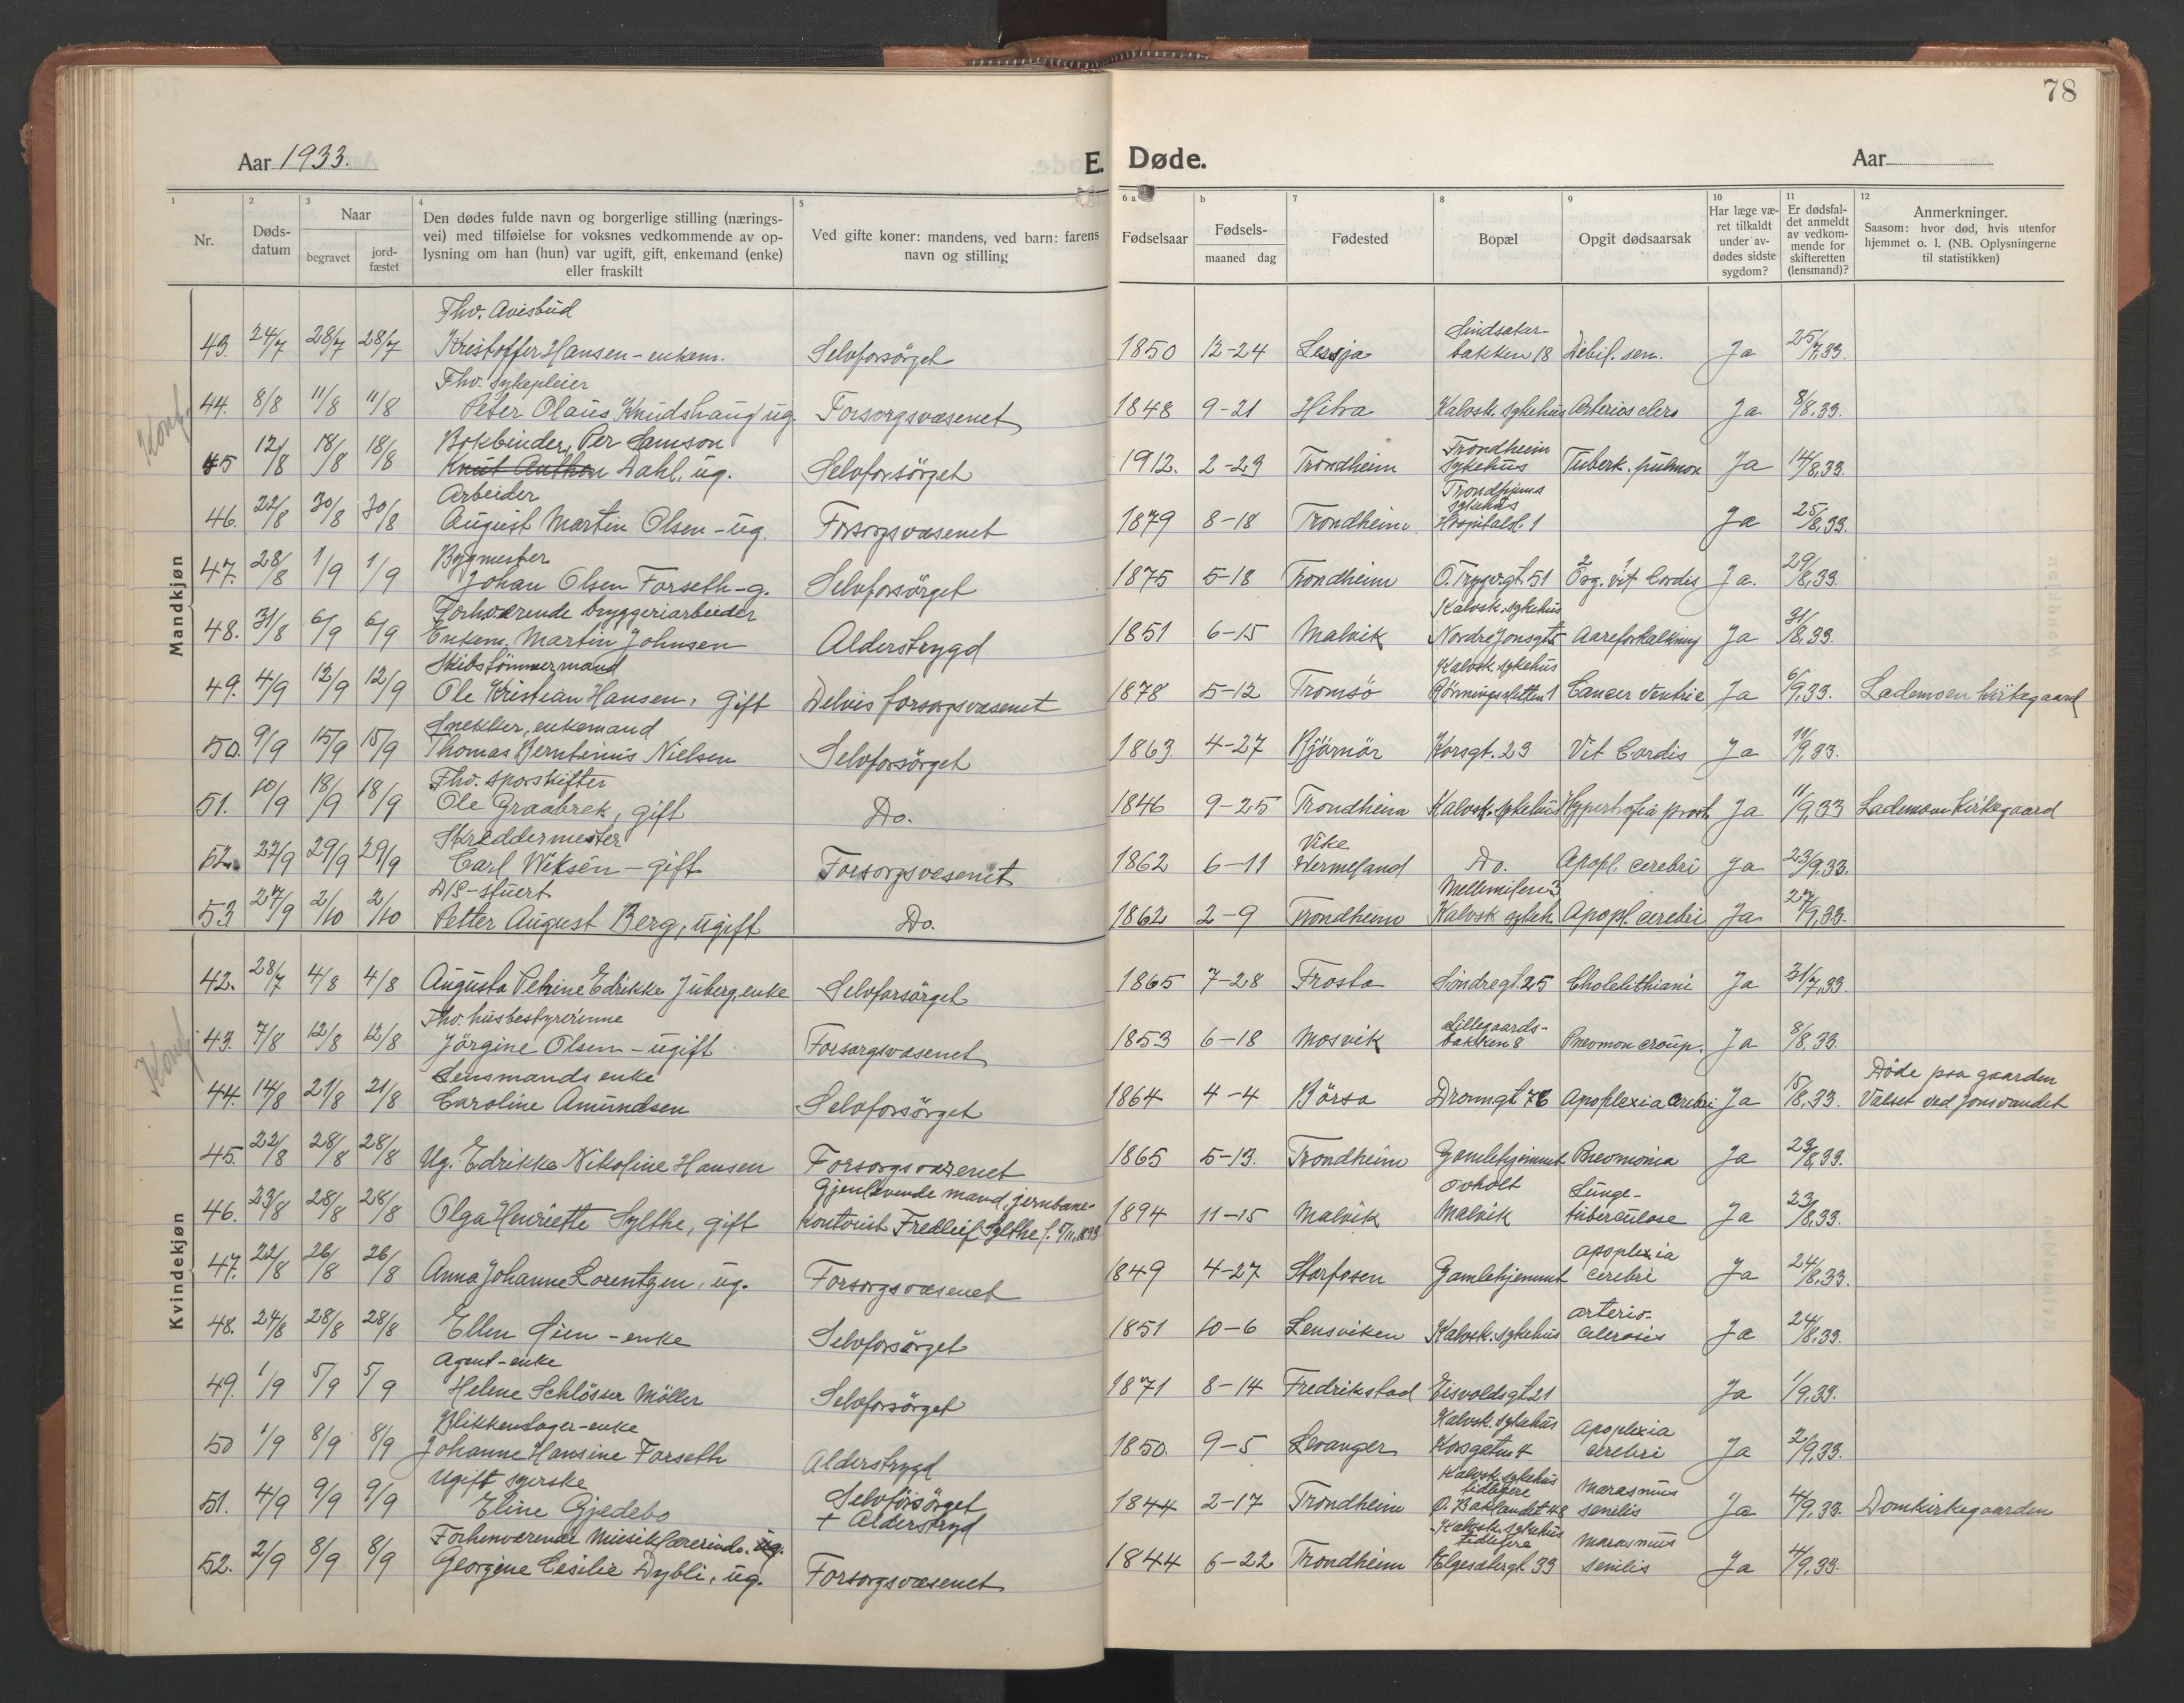 78
Aar 1933.
E. Døde.
Aar
1 2 3 4 5 6 a b 7 8 9 10 11 12
Nr.
Døds-
datum
Naar
begravet
jord-
fæstet
Den dødes fulde navn og borgerlige stilling (nærings-
vei) med tilføielse for voksnes vedkommende av op-
lysning om han (hun) var ugift, gift, enkemand (enke)
eller fraskilt
Ved gifte koner: mandens, ved barn: farens
navn og stilling
Fødselsaar
Fødsels-
maaned dag
Fødested
Bopæl
Opgit dødsaarsak
Har læge væ-
ret tilkaldt
under av-
dødes sidste
sygdom?
Er dødsfal-
det anmeldt
av vedkom-
mende for
skifteretten
(lensmand)?
Anmerkninger.
Saasom: hvor død, hvis utenfor
hjemmet o. l. (NB. Oplysningerne
til statistikken)
Mandkjøn
Fhv. Avisbud
43. 24/7 28/7 28/7 Kristoffer Hansen - enkem. Selvforsörget 1850 12-24 Lesja bakken 18 Debil. sen. Ja 25/7.33.
Fhv. sykepleier
44. 8/8 11/8 11/8 Peter Olaus Knudshaug ug. Forsorgsvæsenet 1848 9-21 Hitra Kalvsk. sykehus Arteriosclero Ja 8/8.33.
Bokbinder, Per Samson Trondheim
45 12/8 18/8 18/8 Knut Anthon Dahl. ug. Selvforsörget 1912. 2-23 Trondheim sykehus Tuberk. pulmon Ja 14/8.33.
Arbeider Trondhjems sykehus
46. 22/8 30/8 30/8 August Martin Olsen - ug. Forsorgsvæsenet 1879 8-18 Trondheim Hospitalsl. 1 Ja 25/8.33.
Bygmester
47. 28/8 1/9 1/9 Johan Olsen Forseth - g. Selvforsörget 1875 5-18 Trondheim O. Trygv.gt. 51 Org. vit Cordis Ja. 29/8.33.
Forhværende bryggeriarbeider Kalvsk. sykehus
48. 31/8 6/9 6/9 Enkem. Martin Johnsen Alderstrygd 1851 6-15 Malvik Nordre Jonsgt 5 Aareforkalkning Ja 31/8.33.
Skibstömmermand Kalvsk. sykehus
49. 4/9 12/9 12/9 Ole Kristian Hansen, Gift Delvis forsorgsvæsenet 1878 5-12 Tromsö Rönningsletten 1 Cancer ventric Ja 6/9.33. Lademoen kirkegaard
Snekker, enkemand
50. 9/9 15/9 15/9 Thomas Berntinus Nielsen Selvforsörget 1863. 4-27 Bjørnör Korsgt. 23 Vit Cordis Ja 11/9.33.
Fhv. sporskifter
51. 10/9 18/9 18/9 Ole Graabrek, gift Do. 1846 9-25 Trondheim Kalvsk. sykehus Hypertrofia prost. Ja 11/9.33 Lademoen Kirkegaard
Skreddermester Vike
52. 22/9 29/9 29/9 Carl Wiksén - gift Forsorgsvesenet 1862 6-11 Wermeland Do. Apopl. cerebri Ja 23/9.33.
D/S - stuert Mellemilen 3
53 27/9 2/10 2/10 Petter August Berg, ugift Do. 1862 2-9 Trondheim Kalvsk sykeh. Apopl. cerebri Ja 27/9.33.
Kvindekjøn
42. 28/7 4/8 4/8 Augusta Petrine Edrikke Juberg, enke Selvforsörget 1865 7-28 Frosta Söndregt. 25 Cholelithiani Ja 31/7.33.
Fhv. husbestyrerinne Lillegaards-
43. 7/8 12/8 12/8 Jörgine Olsen - ugift Forsorgsvæsenet 1853 6-18 Mosvik bakken 8 Pneumon croup. Ja 8/8.33.
Lensmands enke Døde paa gaarden
44. 14/8 21/8 21/8 Caroline Amundsen Selvforsörget 1864 4-4 Börsa Dronngt 7c Apoplexia cerebri Ja 15/8.33. Valset ved Jonsvandet
45. 22/8 28/8 28/8 Ug. Edrikke Nikoline Hansen Forsorgsvæsenet 1865 5-13. Trondheim Gamlehjemmet Pneumonia Ja 23/8.33.
Gjenlevende mand, jernbane- Ovholt Lunge-
46. 23/8 28/8 28/8 Olga Henriette Sylthe, gift kontorist Fredleif Sylthe 1894 11-15 Malvik Malvik tuberculose Ja 23/8.33.
apoplexia
47. 22/8 26/8 26/8 Anna Johanne Lorentzen, ug. Forsorgsvæsenet 1849 4-27 Storfosen Gamlehjemmet cerebri Ja 24/8.33.
arterio-
48. 24/8 28/8 28/8 Ellen Öien - enke Selvforsörget 1851 10-6 Lensviken Kalvsk. sykehus sclerosis Ja 24/8.33.
Agent - enke
49. 1/9 5/9 5/9 Helene Schlösser Möller Selvforsörget 1871 8-14 Fredrikstad Eisvoldsgt. 21 Ja 1/9.33.
Blikkenslager - enke Kalvsk. sykehus Apoplexia
50 1/9 8/9 8/9 Johanne Hansine Forseth Alderstrygd 1850 9-5 Levanger Korsgaten 4 cerebri Ja 2/9.33.
Ugift syerske Selvforsörget Kalvsk. sykehus tidligere Marasmus
51. 4/9 9/9 9/9 Eline Gjedebo + Alderstrygd 1844 2-17 Trondheim Ö. Baklandet 48 senilis Ja 4/9.33. Domkirkegaarden
Forhenværende Musiklærerinde. ug. Kalvsk. sykehus tidligere Marasmus
52. 2/9 8/9 8/9 Georgine Cecilie Dybli, ug. Forsorgsvæsenet 1844 6-22 Trondheim Elgesætergt. 33 senilis Ja 4/9.33.